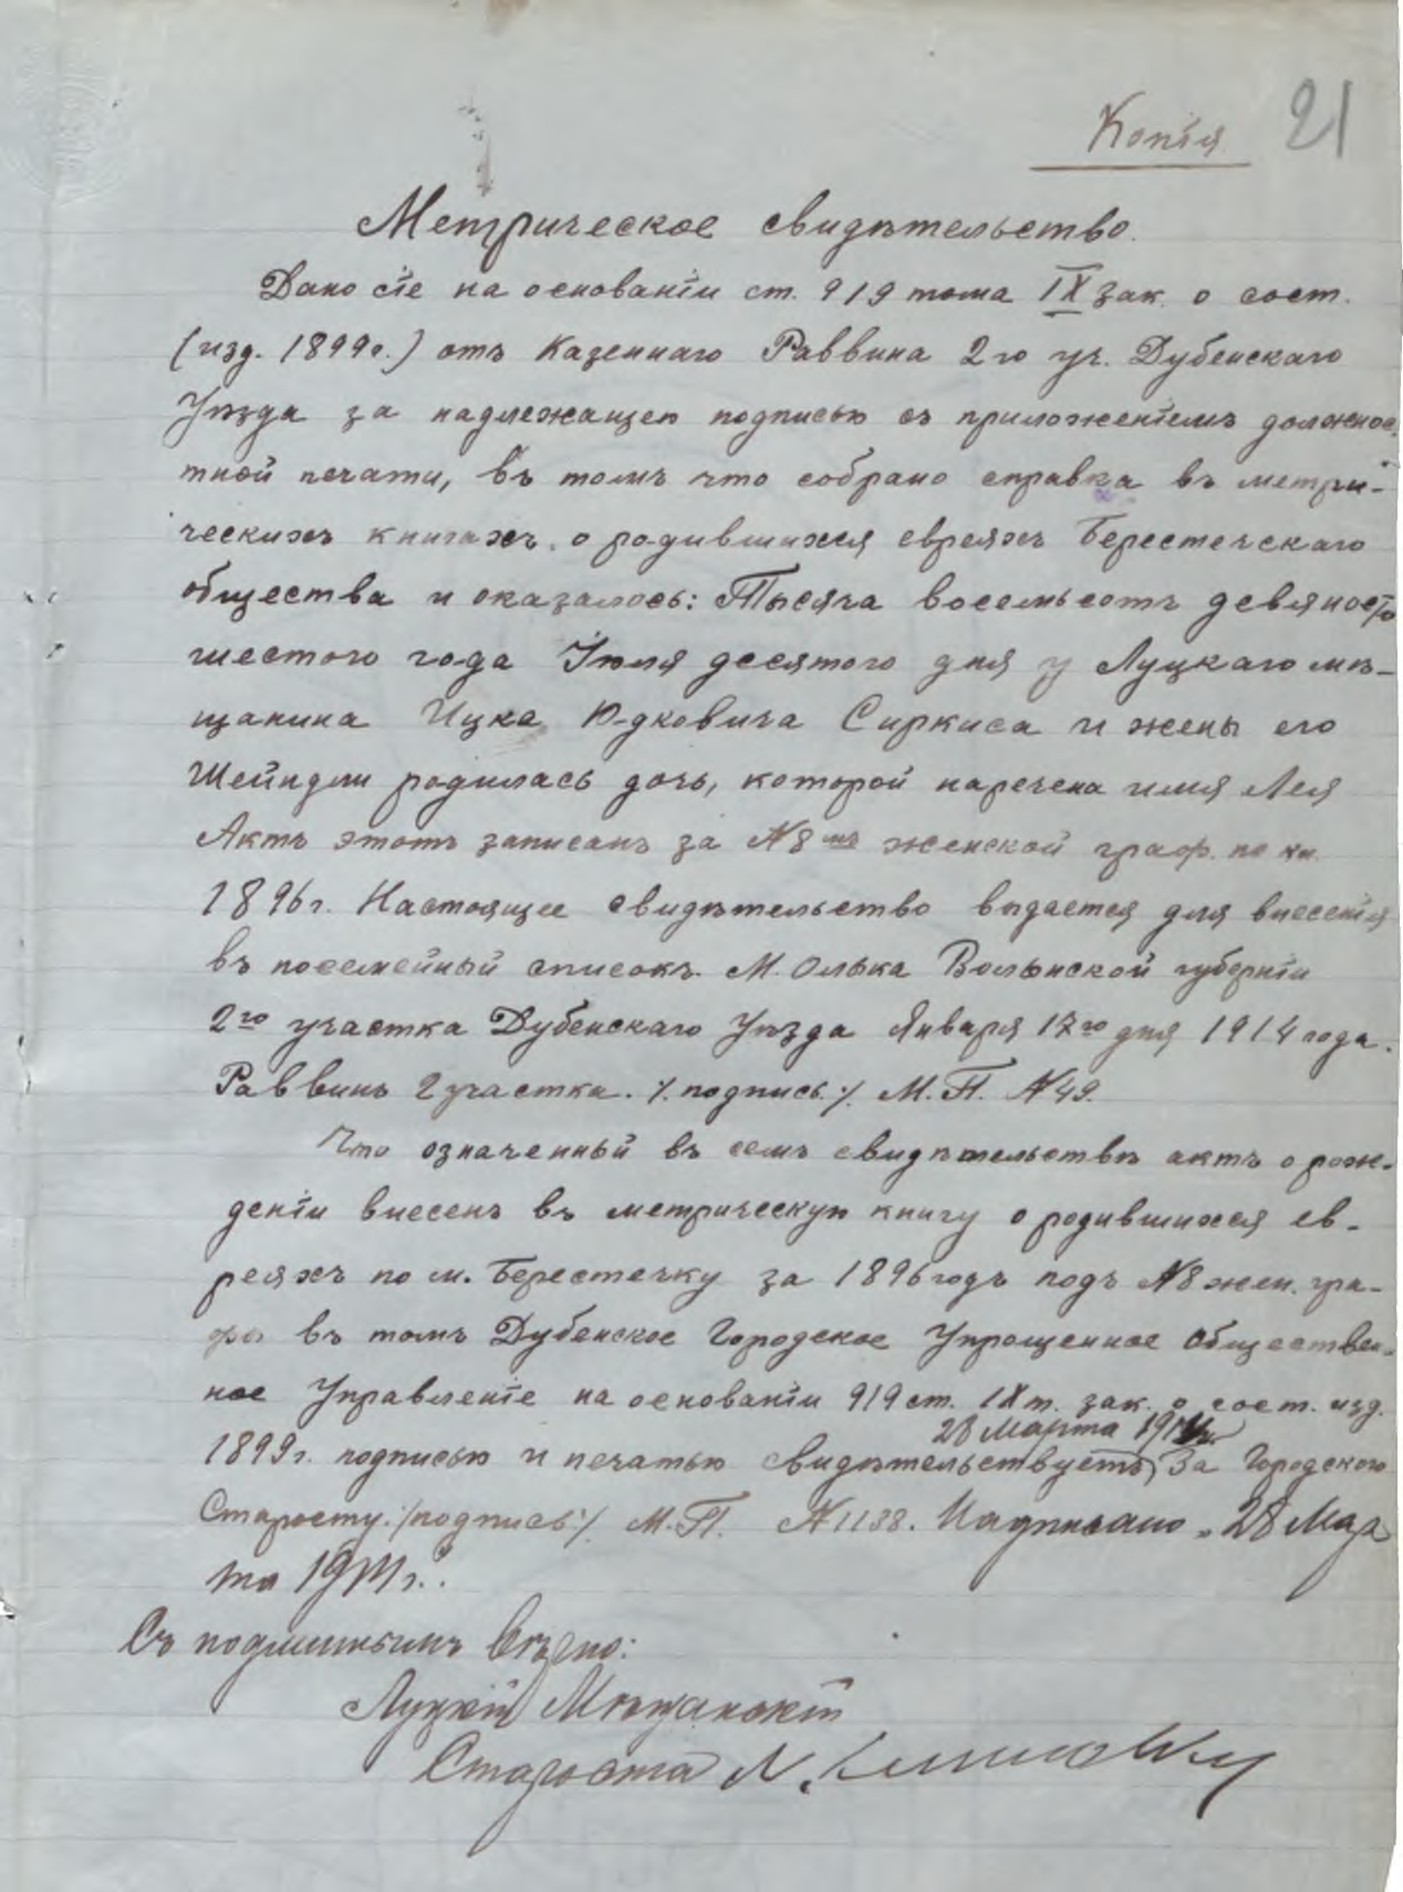 Копія 21
Метрическое свидѣтельство.
Дано сіе на основаніи ст. 919 тома IX зак. о сост.
(изд. 1899г.) отъ Казеннаго Раввина 2го уч. Дубенскаго
Уѣзда за надлежащею подписью съ приложеніемъ должнос-
тной печати, въ томъ что собрано справка въ метри-
ческихъ книгахъ, о родившихся евреяхъ Берестечскаго
общества и оказалось: Тысяча восемьсотъ девяносто
шестого года Іюля десятого дня у Луцкаго мѣ-
щанина Ицка Юдковича Сиркиса и жены его
Шейндли родилась дочь, которой наречена имя Лея
Актъ этотъ записанъ за №8мъ женской граф. по кн.
1896г. Настоящее свидѣтельство выдается для внесенія
въ посемейный списокъ. М. Олыка Волынской губерніи
2го участка Дубенскаго Уѣзда Января 17го дня 1914 года.
Раввинъ 2 участка. /. подпись ./. М.П. №49.
Что означенный въ семъ свидѣтельствѣ актъ о рож-
деніи внесенъ въ метрическую книгу о родившихся ев-
реяхъ по м. Берестечку за 1896 годъ подъ №8 жен. гра-
фы въ томъ Дубенское Городское Упрощенное Обществен-
ное Управленіе на основаніи 919 ст. IX т. зак. о сост. изд.
28 Марта
1899г. подписью и печатью свидѣтельствуетъ, За Городского
Старосту ./подпись/. М.П. №1138. Надписано „28 Мар
та г.
Съ подлиннымъ вѣрно:
Луцкій Мѣщанскій
Староста